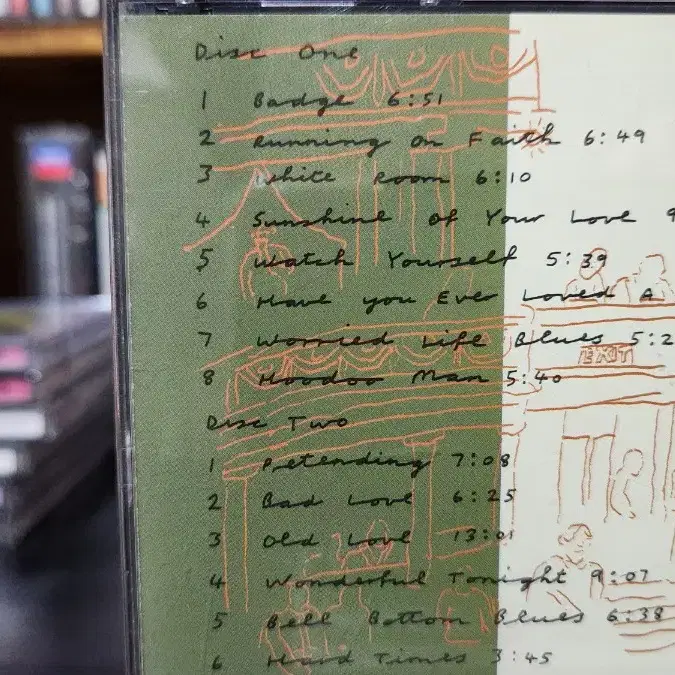 Disc One
1 Badge 6:51
2 Running on Faith 6:49
3 White Room 6:10
4 Sunshine of Your Love 9
5 Watch Yourself 5:39
6 Have you Ever Loved A
7 Worried Life Blues 5:2
8 Hoodoo Man 5:40
EXIT
Disc Two
1 Petending 7:08
2 Bad Love 6:25
3 Old Love 13:01
4 Wonderful Tonight 9:07
5 Bell Bottom Blues 6:38
6 Hard Times 3:45